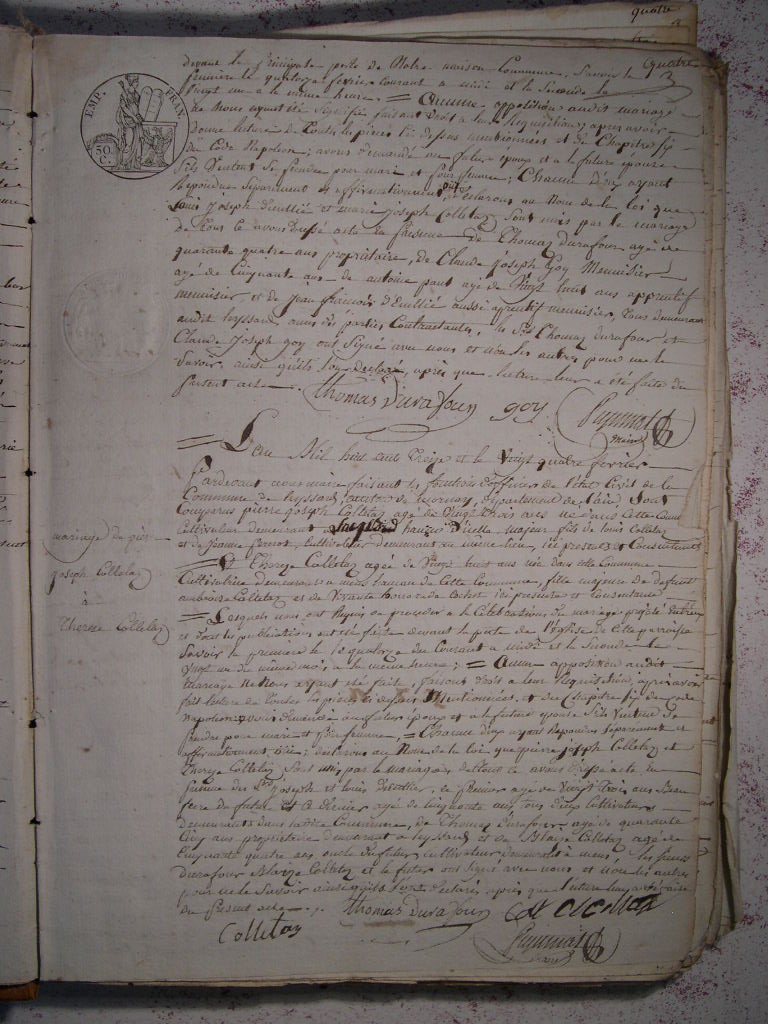 quatre
EMP. FRAN.
50 C.
devant la principale porte de Notre maison Commune, Savoir la quatre
première le quatorze février courant a midi et la Seconde le
Vingt un a la même heure. = Aucune opposition audit mariage
Ne Nous ayant été Signifiée faisant droit a leur Requisition, apres avoir
Donné lecture de Toutes les pieces Ci dessus mentionnées et du Chapitre 6
du Code Napoleon; avons demandé au futur epoux et a la future epouse
S'ils Veulent Se prendre pour mari et pour femme; Chacun D'eux ayant
Repondue Séparement et affirmativement, declarons au Nom de la loi que
Joseph et marie Joseph Colletaz Sont unis par le mariage
De Tout ce avons Dressé acte en presence De Thomaz Durafour agé de
quarante quatre ans propriétaire, de Claude Joseph Goy Menuisier
agé de Cinquante ans de antoine agé de Vingt huit ans apprentif
menuisier et de Jean françois D'Emillié aussi aprentif menuisier, Tous demeurant
audit leyssard, amis des parties Contractantes, les Srs Thomaz durafour et
Claude Joseph goy ont Signé avec nous et Non les autres pour ne le
Savoir, ainsi qu'ils l'ont Declaré, après que lecture leur a été faite du
present acte.
Thomas Durafour goy
maire
L'an Mil huit cent Treize et le Vingt quatre fevrier
Pardevant nous maire faisant les fonctions d'officier de l'etat Civil de la
Commune de leyssard, canton de, département de l'ain Sont
Comparus pierre joseph Colletaz agé de Vingt trois ans né dans Cette Commune
Cultivateur demeurant a hameau D'icelle, majeur fils de louis Colletaz
et de Jeanne, Cultivateur demeurant au même lieu, ici presents et Consentants
mariage de pierre
joseph Colletaz
à
Therese Colletaz
Et Therese Colletaz agé de Vingt huit ans née dans cette Commune
Cultivatrice demeurant a hameau de Cette Commune, fille majeure de defunt
ambroise Colletaz et de Vivante ici presente et Consentante
= Lesquels nous ont Requis de proceder a la Celebration du mariage projeté entr'eux
et dont les publications ont été faites devant la porte de l'église de cette paroisse
Savoir la premiere le quatorze du Courant a midi et la Seconde le
Vingt un du même mois, a la même heure; = Aucune opposition audit
mariage ne Nous ayant été faite, faisant droit a leur Requisition, après avoir
fait lecture de Toutes les pieces ci dessus Mentionnées, et du Chapitre 6 du Code
Napoleon avons demandé au futur epoux et a la future epouse S'ils Veulent Se
prendre pour mari et pour femme, = Chacun d'eux ayant Repondu Séparement et
affirmativement oui; declarons au Nom de la loi que pierre Joseph Colletaz et
Therese Colletaz Sont unis par le mariage, de tout ce avons Dressé acte en
presence des Srs Joseph et louis, le premier agé de Vingt trois ans Beau
frere du futur et le dernier agé de Cinquante Cultivateurs
demeurants dans ladite Commune, de Thomaz durafour agé de quarante
Cinq ans propriétaire demeurant a leyssard et de Blaize Colletaz agé de
Cinquante quatre ans oncle du futur, cultivateur demeurant a, les Sieurs
Durafour Blaize Colletaz et le futur ont Signé avec nous et Non les autres
pour ne le Savoir ainsi qu'ils l'ont declaré, après que lecture leur a été faite
du Present acte.
Thomas Durafour
Colletaz